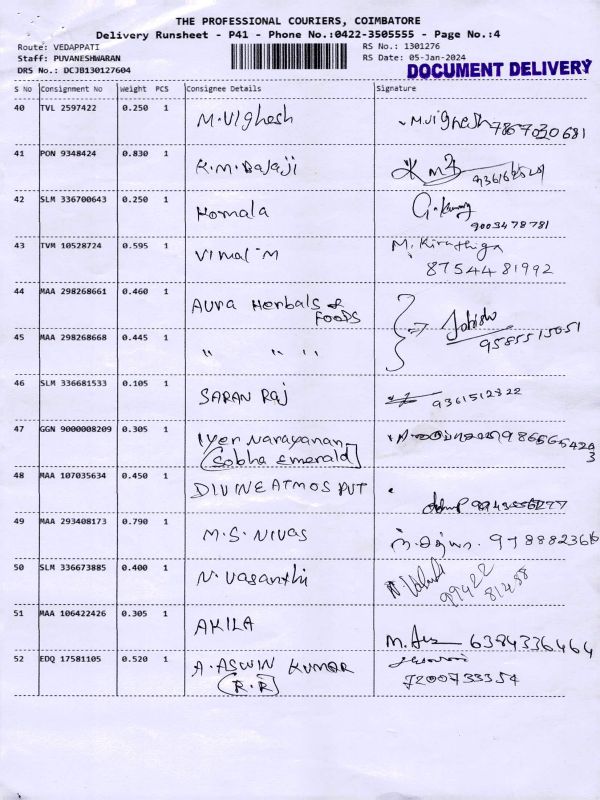 THE PROFESSIONAL COURIERS, COIMBATORE
Delivery Runsheet - P41 - Phone No.:0422-3505555 - Page No.:4
Route: VEDAPPATI RS No.: 1301276
Staff: PUVANESHWARAN RS Date: 05-Jan-2024
DRS No.: DCJB130127604 DOCUMENT DELIVERY
S No Consignment No Weight PCS Consignee Details Signature
40 TVL 2597422 0.250 1 M.Vighesh M.Vighesh 7867030681
41 PON 9348424 0.830 1 K.M.Balaji
42 SLM 336700643 0.250 1 Komala G.Kumar 9003478781
43 TVM 10528724 0.595 1 Vimal-M M.Kiruthiga
8754481992
44 MAA 298268661 0.460 1 Aura Herbals &
FOODS
45 MAA 298268668 0.445 1 " " " " 9585515051
46 SLM 336681533 0.105 1 SARAN RAJ 9361512822
47 GGN 9000008209 0.305 1 Iyer Narayanan
(Sobha Emerald)
48 MAA 107035634 0.450 1 DIVINE ATMOS PVT
49 MAA 293408173 0.790 1 M.S.NIVAS
50 SLM 336673885 0.400 1 N.Vasanthi 99422
81488
51 MAA 106422426 0.305 1 AKILA 6384336464
52 EDQ 17581105 0.520 1 A.ASWIN KUMAR
(R.R) 7200733354